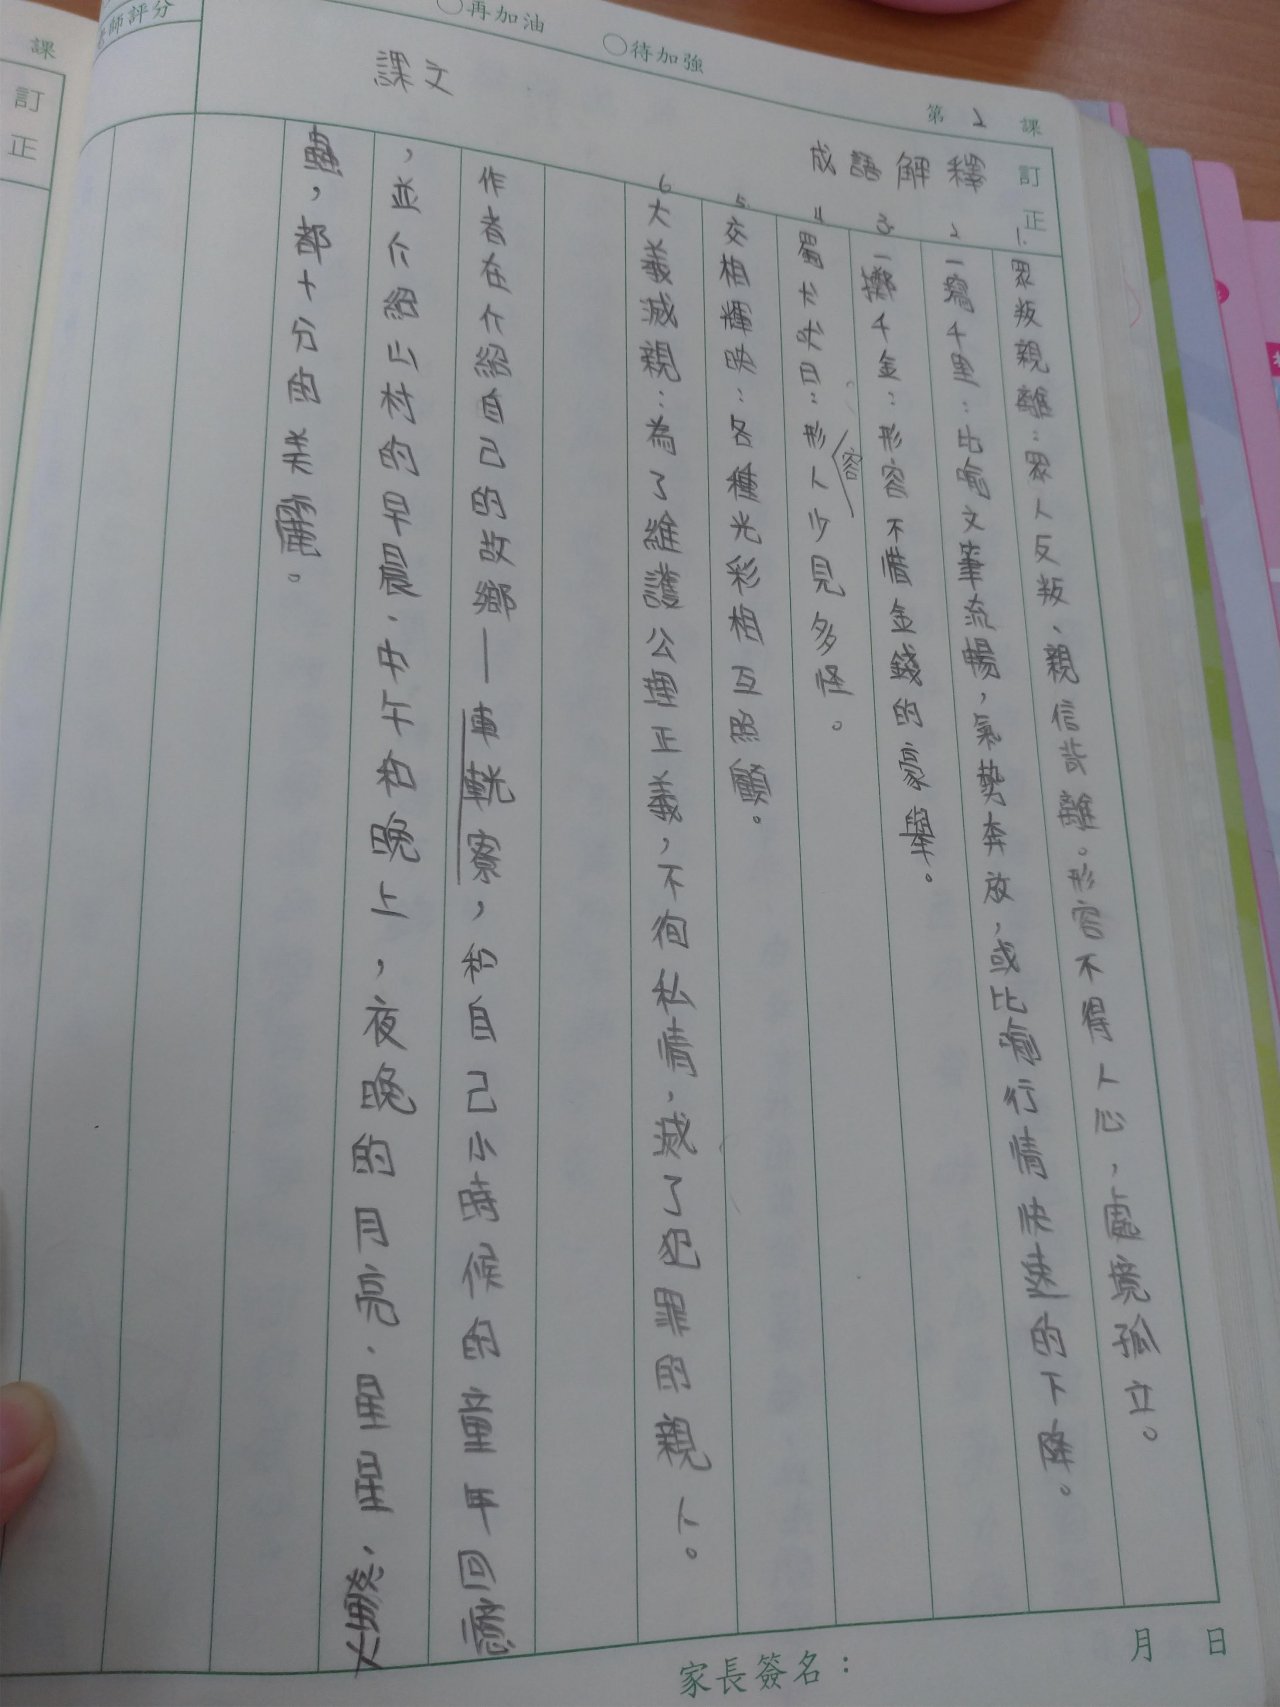 第2課
訂正
成語解釋
1.眾叛親離：眾人反叛、親信背離。形容不得人心，處境孤立。
2一瀉千里：比喻文筆流暢，氣勢奔放，或比喻行情快速的下降。
3一擲千金：形容不惜金錢的豪舉。
4蜀犬吠日：形容人少見多怪。
5交相輝映：各種光彩相互照顧。
6大義滅親：為了維護公理正義，不徇私情，滅了犯罪的親人。
課文
作者在介紹自己的故鄉—車輄寮，和自己小時候的童年回憶
，並介紹山村的早晨、中午和晚上，夜晚的月亮、星星、螢火
蟲，都十分的美麗。
○再加油
○待加強
師評分
家長簽名：
月 日
課
訂正